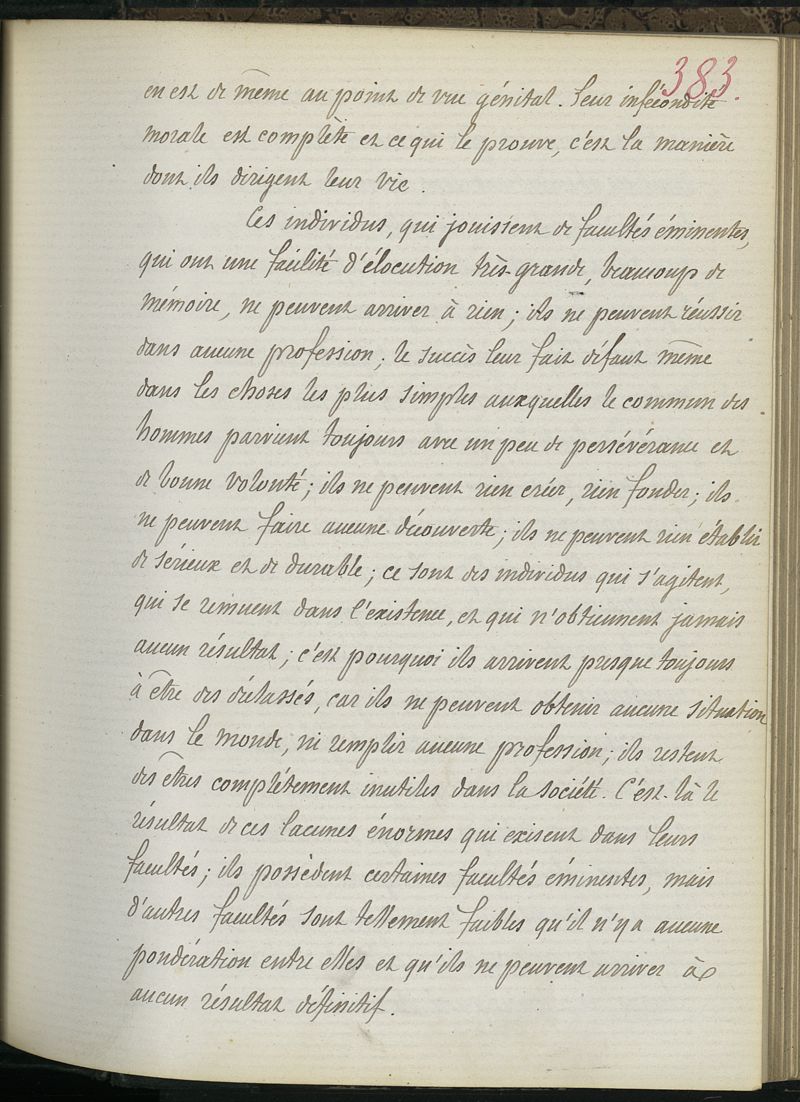 383.
en est de même au point de vue génital. Leur infécondité
morale est complète et ce qui le prouve, c'est la manière
dont ils dirigent leur vie.
Ces individus, qui jouissent de facultés éminentes,
qui ont une facilité d'élocution très-grande, beaucoup de
mémoire, ne peuvent arriver à rien; ils ne peuvent réussir
dans aucune profession; le succès leur fait défaut même
dans les choses les plus simples auxquelles le commun des
hommes parvient toujours avec un peu de persévérance et
de bonne volonté; ils ne peuvent rien créer, rien fonder; ils
ne peuvent faire aucune découverte; ils ne peuvent rien établir
de sérieux et de durable; ce sont des individus qui s'agitent,
qui se remuent dans l'existence, et qui n'obtiennent jamais
aucun résultat; c'est pourquoi ils arrivent presque toujours
à être des déclassés, car ils ne peuvent obtenir aucune situation
dans le monde, ni remplir aucune profession; ils restent
des êtres complètement inutiles dans la société. C'est-là le
résultat de ces lacunes énormes qui existent dans leurs
facultés; ils possèdent certaines facultés éminentes, mais
d'autres facultés sont tellement faibles qu'il n'y a aucune
pondération entre elles et qu'ils ne peuvent arriver à
aucun résultat définitif.